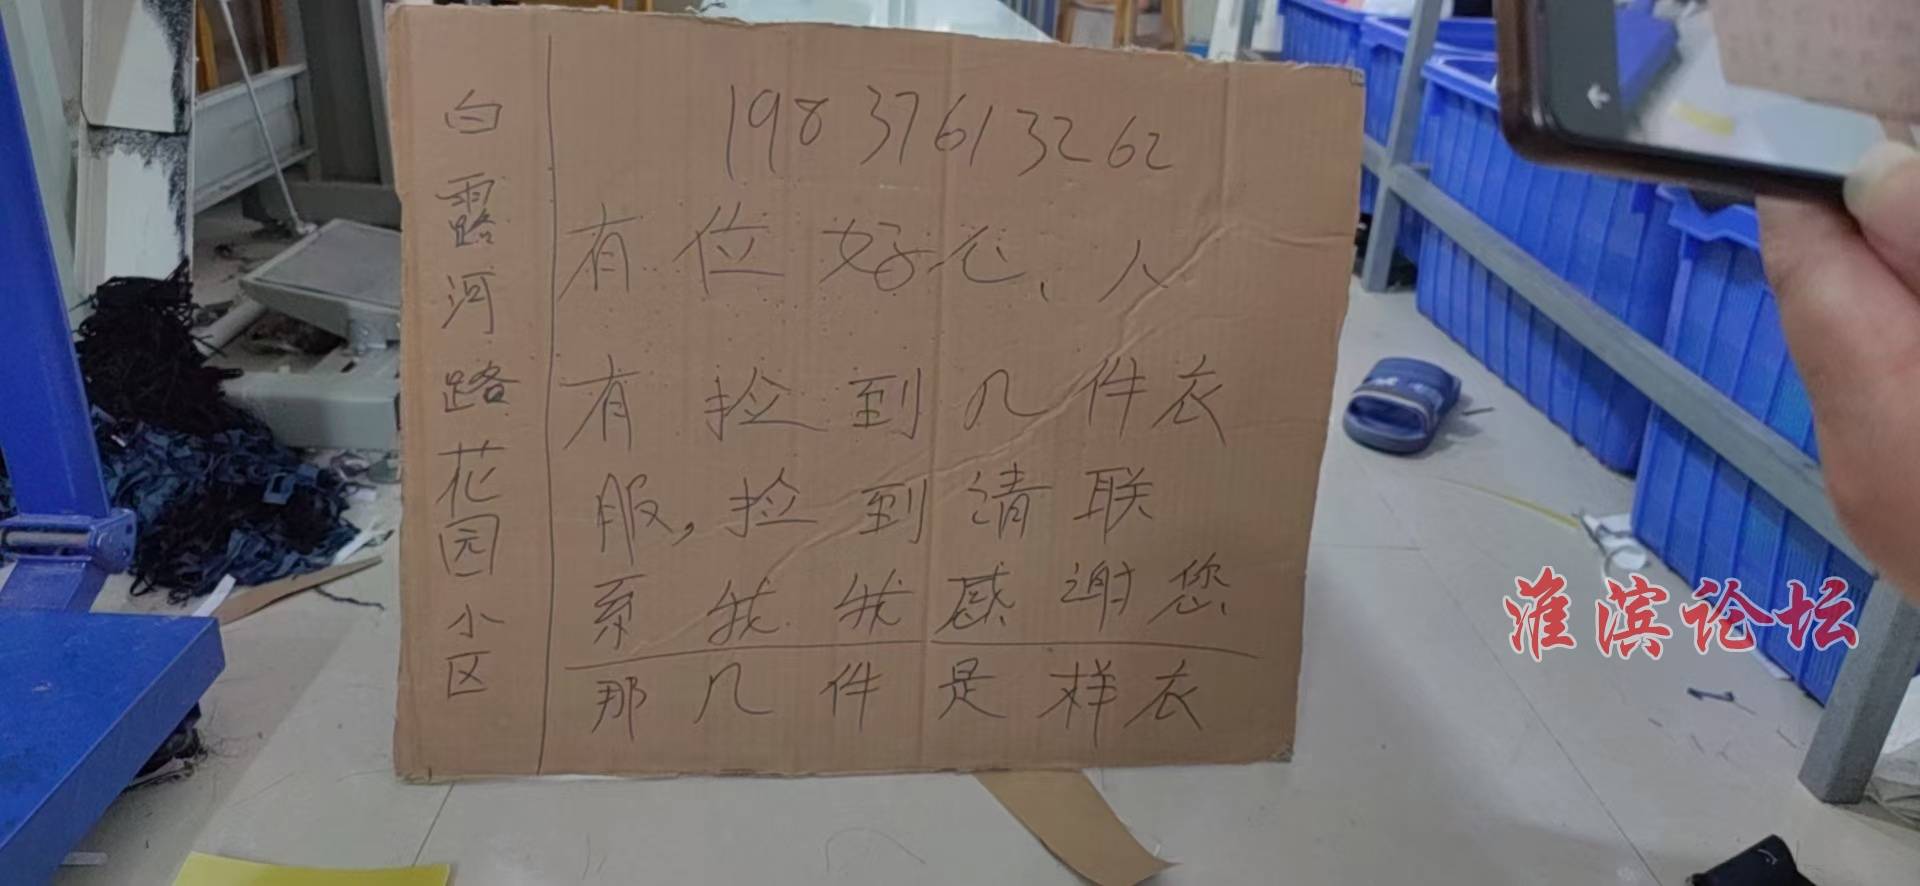 白露河路花园小区
19837613262
有位好心人
有捡到几件衣
服,捡到请联
系我我感谢您
那几件是样衣
淮滨论坛